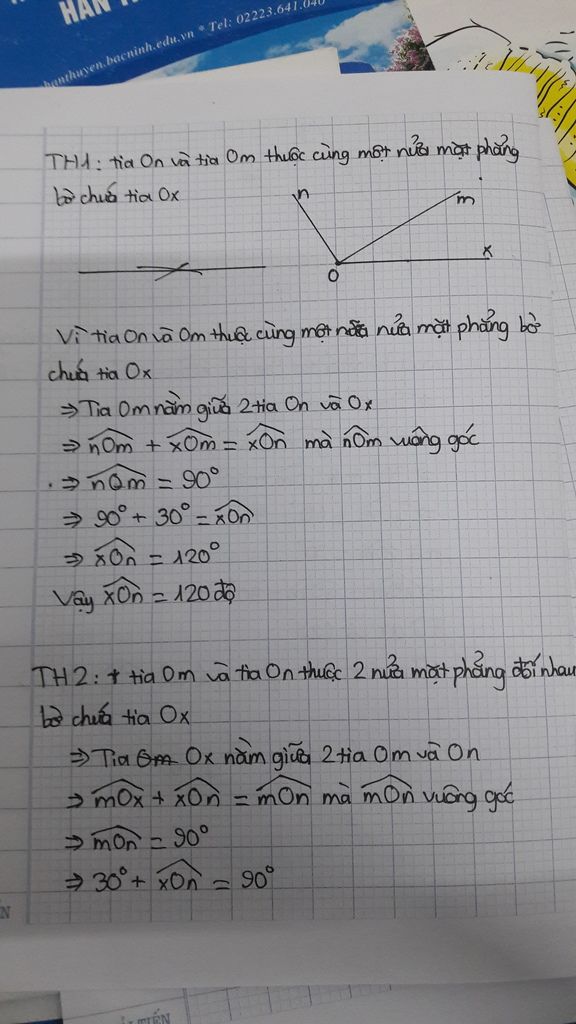 HÀN
hanthuyen.bacninh.edu.vn * Tel: 02223.641.040
TH1: tia On và tia Om thuộc cùng một nửa mặt phẳng
bờ chứa tia Ox
n
m
x
O
Vì tia On và Om thuộc cùng một nửa mặt phẳng bờ
chứa tia Ox
⇒ Tia Om nằm giữa 2 tia On và Ox
⇒ nOm + xOm = xOn mà nOm vuông góc
⇒ nOm = 90°
⇒ 90° + 30° = xOn
⇒ xOn = 120°
Vậy xOn = 120 độ
TH2: + tia Om và tia On thuộc 2 nửa mặt phẳng đối nhau
bờ chứa tia Ox
⇒ Tia Ox nằm giữa 2 tia Om và On
⇒ mOx + xOn = mOn mà mOn vuông góc
⇒ mOn = 90°
⇒ 30° + xOn = 90°